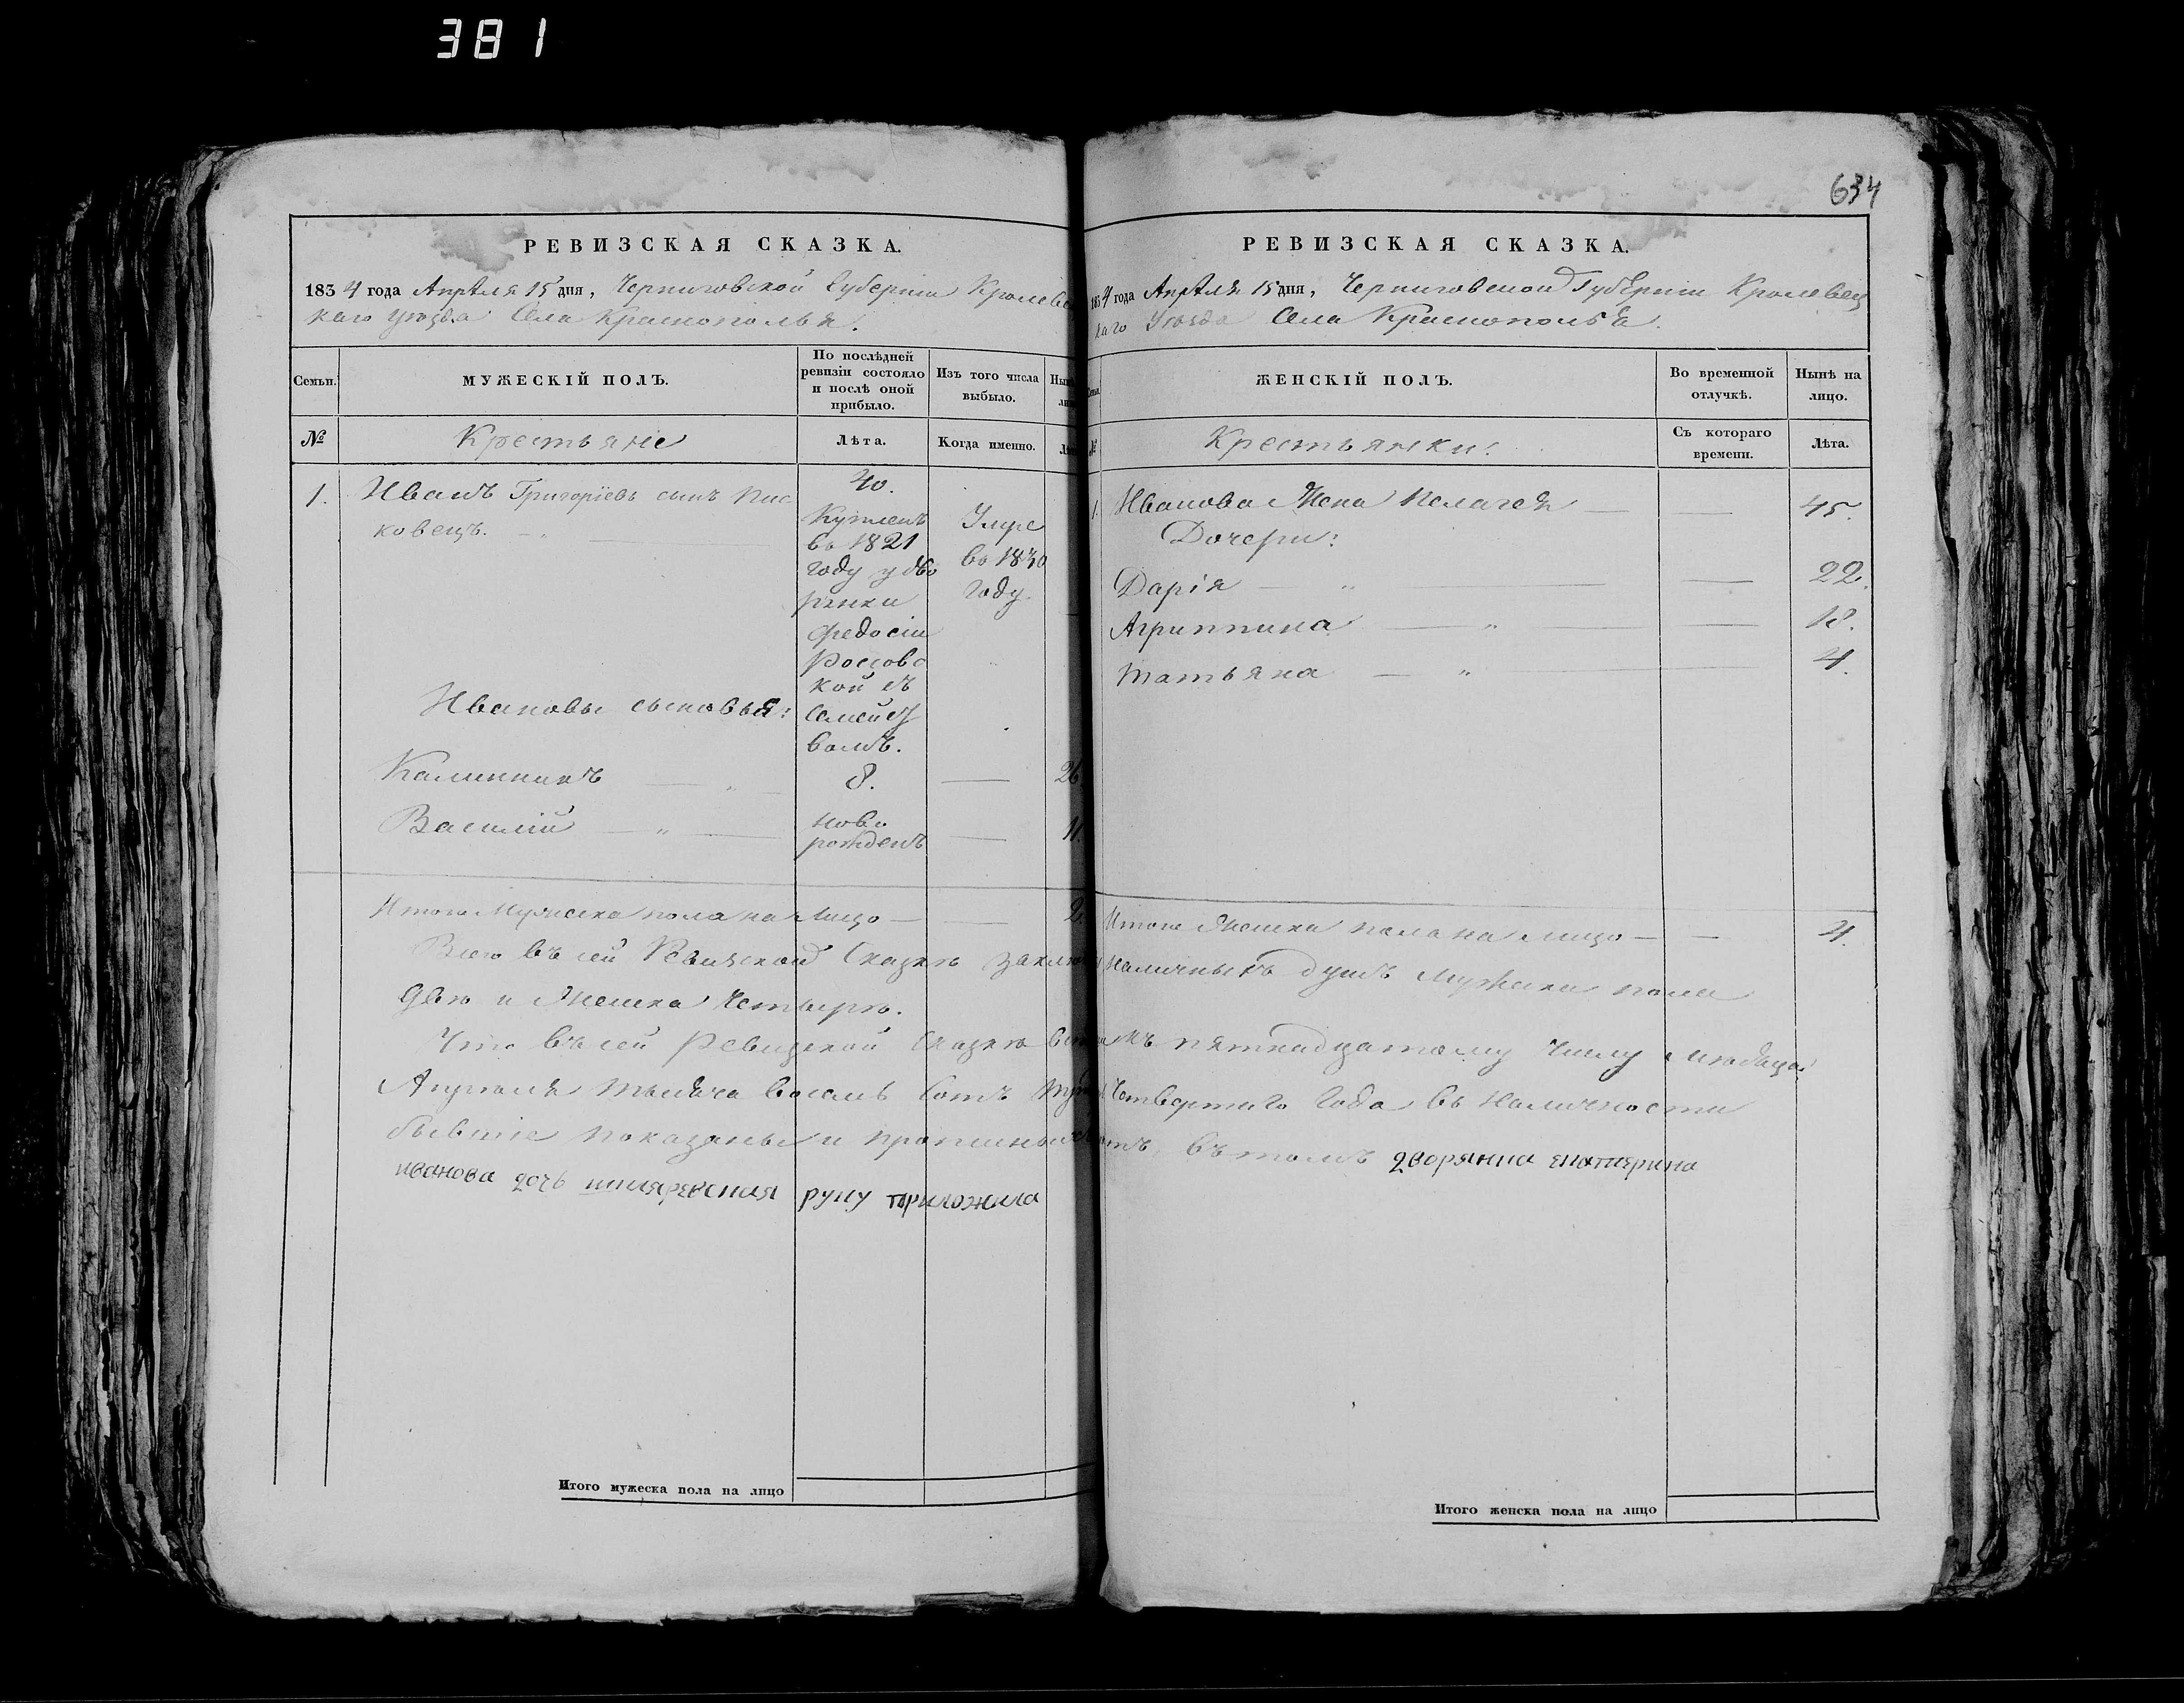 381
634
РЕВИЗСКАЯ СКАЗКА.
1834 года Апрѣля 15 дня, Черниговской Губерніи Кролевец
каго уѣзда Села Краснополья.
Семьи.
МУЖЕСКІЙ ПОЛЪ.
По послѣдней
ревизіи состояло
и послѣ оной
прибыло.
Изъ того числа
выбыло.
№
Крестьяне
Лѣта.
Когда именно.
1. Иванъ Григорiевъ сынъ Пис
ковецъ.
40.
Купленъ
въ 1821
году у дво
рянки
Федосіи
кой съ
семейст
вомъ.
Умре
въ 1830
году.
Ивановы сыновья:
Калинникъ 8. 26
Василій ново
рожденъ 11.
Итого Мужеска пола на лицо 2.
РЕВИЗСКАЯ СКАЗКА.
1834 года Апрѣля 15 дня, Черниговской Губерніи Кролевец
каго Уѣзда Села Краснополья.
ЖЕНСКІЙ ПОЛЪ.
Во временной
отлучкѣ.
Нынѣ на
лицо.
№
Крестьянки:
Съ котораго
времени.
Лѣта.
1. Иванова Жена Пелагея 45.
Дочери:
Дарія 22.
Агриппина 18.
Татьяна 4.
Итого Женска пола на лицо 4.
Всего въ сей Ревизской Сказкѣ наличныхъ душъ мужеска пола
двѣ и Женска Четыре.
Что въ сей Ревизской Сказкѣ къ пятнадцатому Числу
Апрѣля тысяча восемь сотъ Четвертаго Года въ Наличности
бывшіе показаны и нѣтъ, въ томъ дворянка екатерина
иванова дочь руку приложила
Итого мужеска пола на лицо
Итого женска пола на лицо